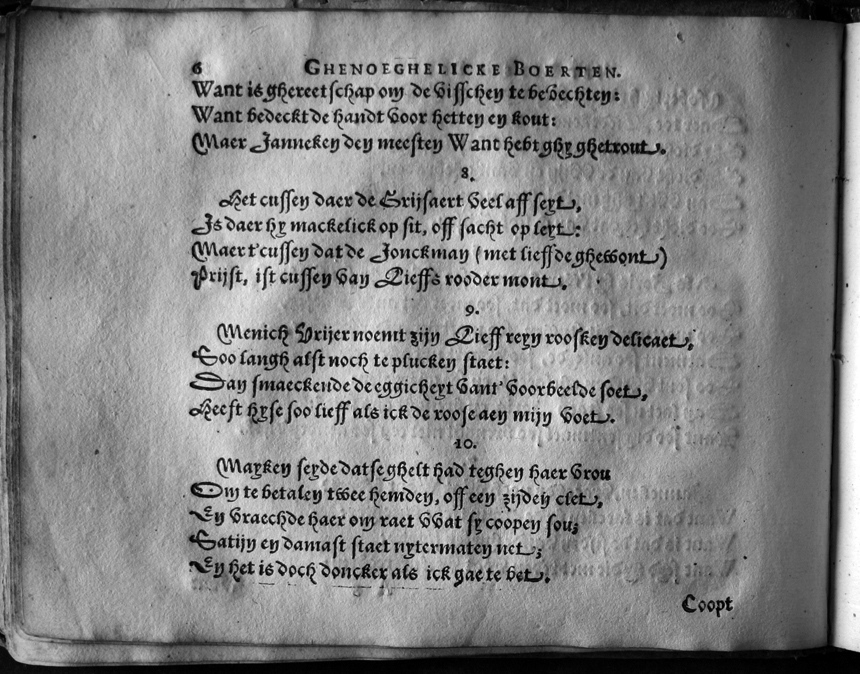 6 GHENOEGHELICKE BOERTEN.
Want is ghereetschap om de visschen te bevechten:
Want bedeckt de handt voor hetten en kout:
Maer Janneken den meesten Want hebt ghy ghetrout.
8.
Het cussen daer de Grijsaert veel aff seyt,
Is daer hy mackelick op sit, off sacht op leyt:
Maer t'cussen dat de Jonckman (met lieff de ghewont)
Prijst, ist cussen van Lieffs rooder mont.
9.
Menich Vrijer noemt zijn Lieff reyn roosken delicaet,
Soo langh alst noch te plucken staet:
Dan smaeckende de eggicheyt vant' voorbeelde soet,
Heeft hyse soo lieff als ick de roose aen mijn voet.
10.
Mayken seyde datse ghelt had teghen haer vrou
Om te betalen twee hemden, off een zijden clet,
En vraechde haer om raet wat sy coopen sou;
Satijn en damast staet uytermaten net;
En het is doch doncker als ick gae te bet.
Coopt